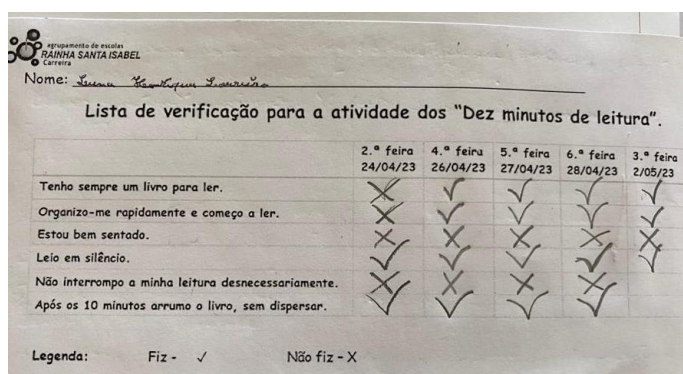 agrupamento de escolas
RAINHA SANTA ISABEL
Carreira
Nome: Luna Henriques Loureiro
Lista de verificação para a atividade dos "Dez minutos de leitura".
2.ª feira 4.ª feira 5.ª feira 6.ª feira 3.ª feira
24/04/23 26/04/23 27/04/23 28/04/23 2/05/23
Tenho sempre um livro para ler. X ✓ ✓ ✓ ✓
Organizo-me rapidamente e começo a ler. X ✓ ✓ ✓ ✓
Estou bem sentado. X X X X X
Leio em silêncio. ✓ ✓ ✓ ✓ ✓
Não interrompo a minha leitura desnecessariamente. X X X X
Após os 10 minutos arrumo o livro, sem dispersar. ✓ ✓ ✓ ✓
Legenda: Fiz - ✓ Não fiz - X